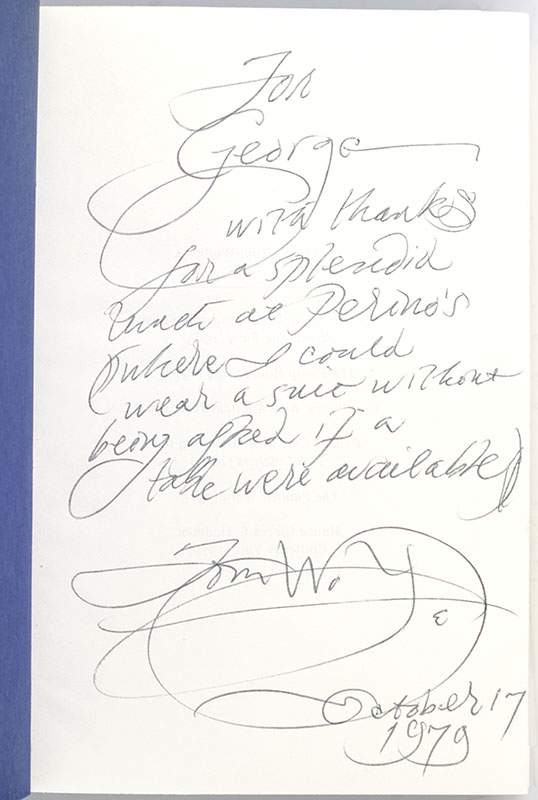 For
George
with thanks
for a splendid
lunch at Perino's
(where I could
wear a suit without
being asked if a
table were available)
Tom Wolfe
October 17
1979